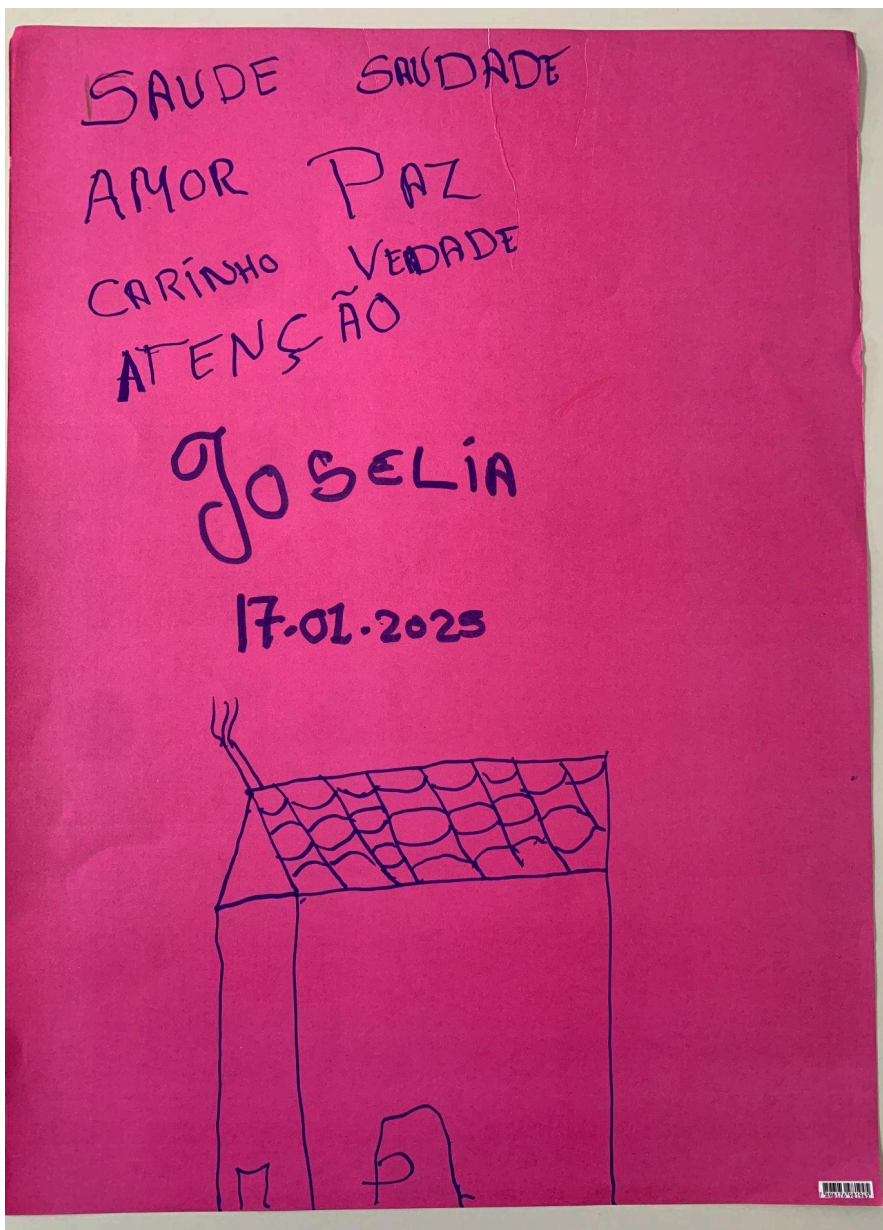 SAUDE SAUDADE
AMOR PAZ
CARÍNHO VEDADE
ATENÇÃO
JOSELÍA
17.01.2025